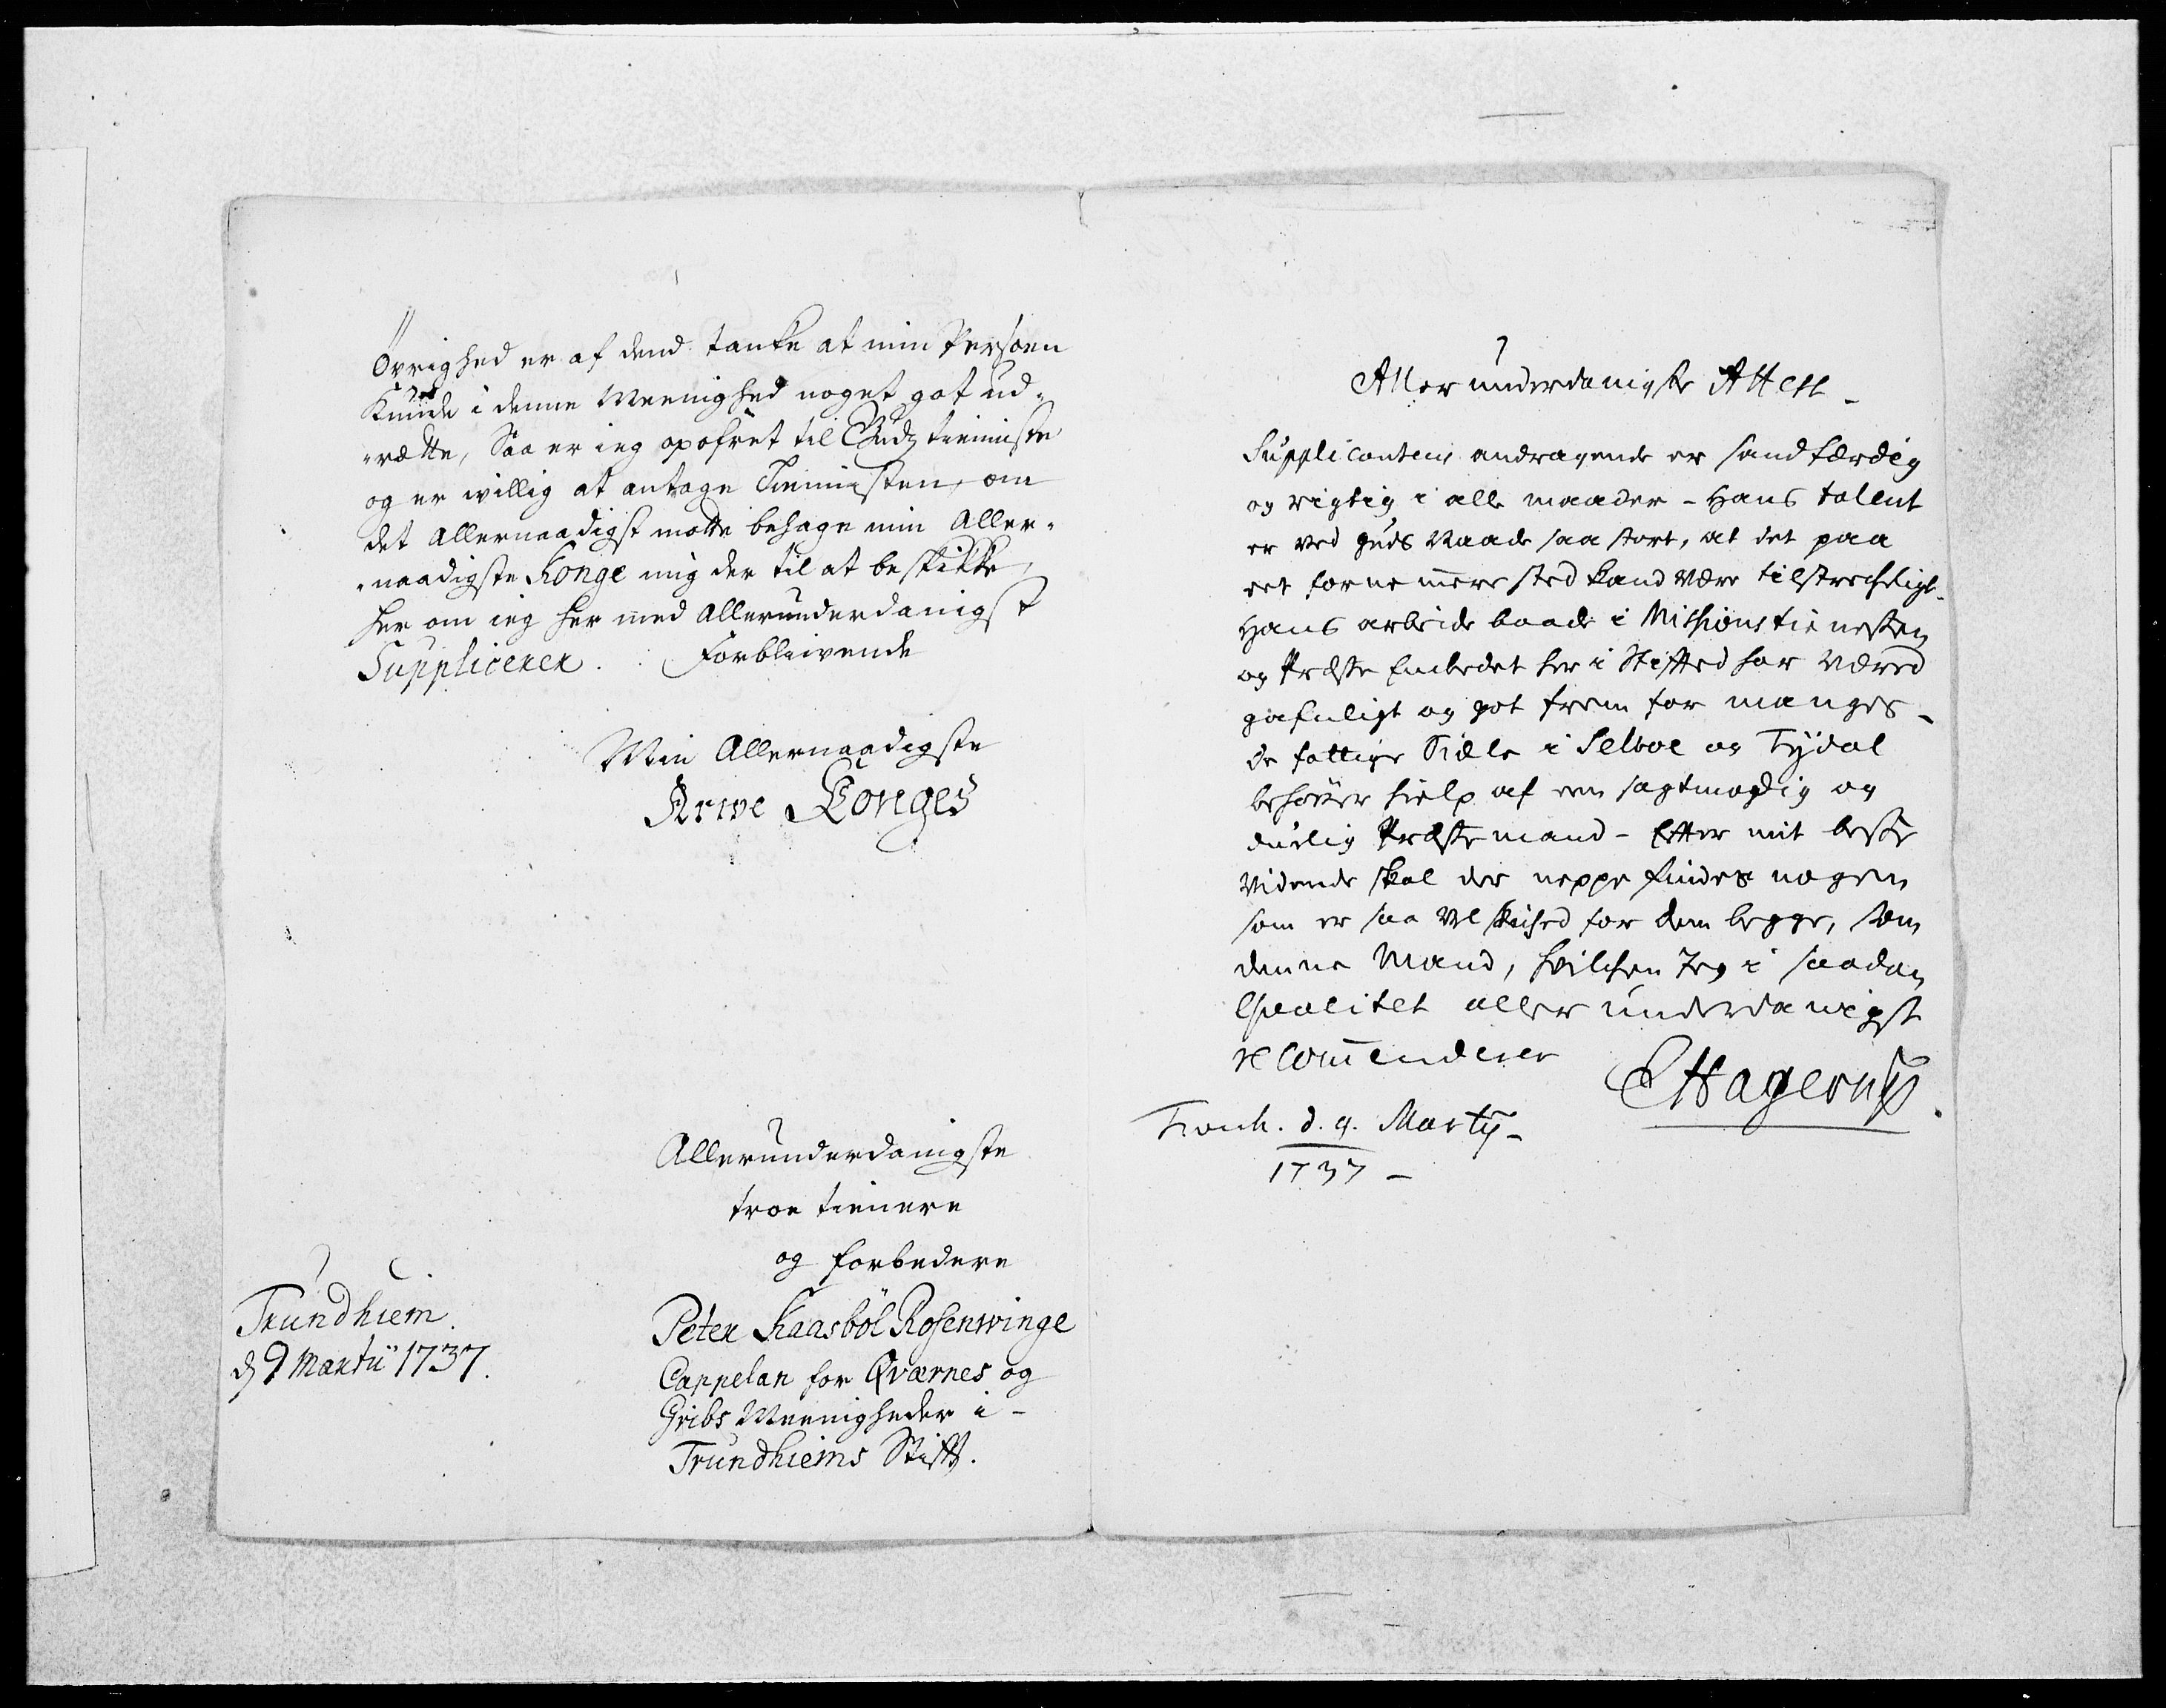 Øvrighed er af dend tanke at min Persoen
Kunde i denne Meenighed noget got ud-
-rætte, Saa er ieg opofret til Gudz tieniste
og er willig at antage Tienisten, om
det Allernaadigst motte behage min Aller-
-naadigste Konge mig der til at beskikke,
her om ieg her med Allerunderdanigst
Supplicerer. Forblivende
Min Allernaadigste
Arwe Konges
Allerunderdanigste
troe tienere
og forbedere
Trundhiem
d 9 Martii 1737.
Peter Kaasböl Rosenwinge
Cappelan for Qværnes og
Gribs Meenigheder i -
Trundhiems Stift.
Allerunderdanigste Attest -
Supplicantens andragende er sandfærdig
og rigtig i alle maader - Hans talent
er ved Guds Naade saa stort, at det paa
eet fornemmere sted kand være tilstrecheligt.
Hans arbeide baade i Missions tienesten
og Præste Embedet her i Stifted har været
gafnligt og got frem for manges -
de fattige Siæle i Selboe og Tydal
behøver hielp af een sagtmodig og
duelig Præstemand - Efter mit beste
Vidende skal der neppe findes nogen
som er saa vel skiked for dem begge, som
denne Mand, hvilchen Jeg i saadan
qualitet allerunderdanigst
recommenderer
EHagerup.
Tronh. d. 9. Martij -
1737 -